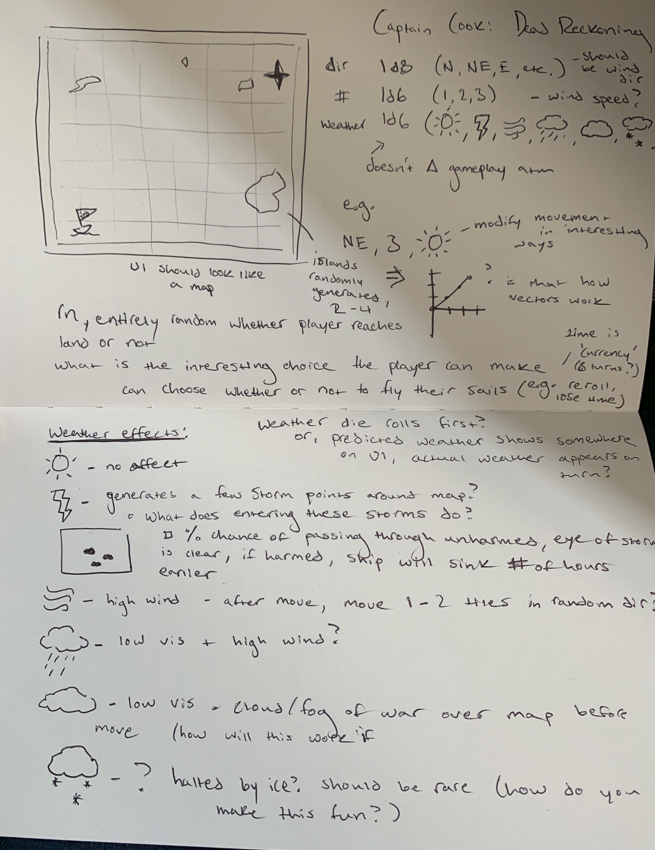 Captain Cook: Dead Reckoning
dir 1d8 (N, NE, E, etc.) - should be wind dir
# 1d6 (1, 2, 3) - wind speed?
weather 1d6 ( , , , , , ,
doesn't Δ gameplay atm
e.g.
NE, 3, - modify movement in interesting ways
⇒ ? is that how vectors work
UI should look like
a map
islands
randomly
generated,
2-4
rn, entirely random whether player reaches
land or not
time is
'currency'
what is the interesting choice the player can make / (8 turns?)
can choose whether or not to fly their sails (e.g. reroll, lose time)
Weather effects:
Weather die rolls first?
or, predicted weather shows somewhere
on UI, actual weather appears on
turn?
- no effect
- generates a few storm points around map?
◦ What does entering these storms do?
▫ % chance of passing through unharmed, eye of storm
is clear, if harmed, ship will sink # of hours
earlier
- high wind - after move, move 1-2 tiles in random dir?
- low vis + high wind?
- low vis - cloud/fog of war over map before
move (how will this work if
- ? halted by ice? should be rare (how do you
make this fun?)